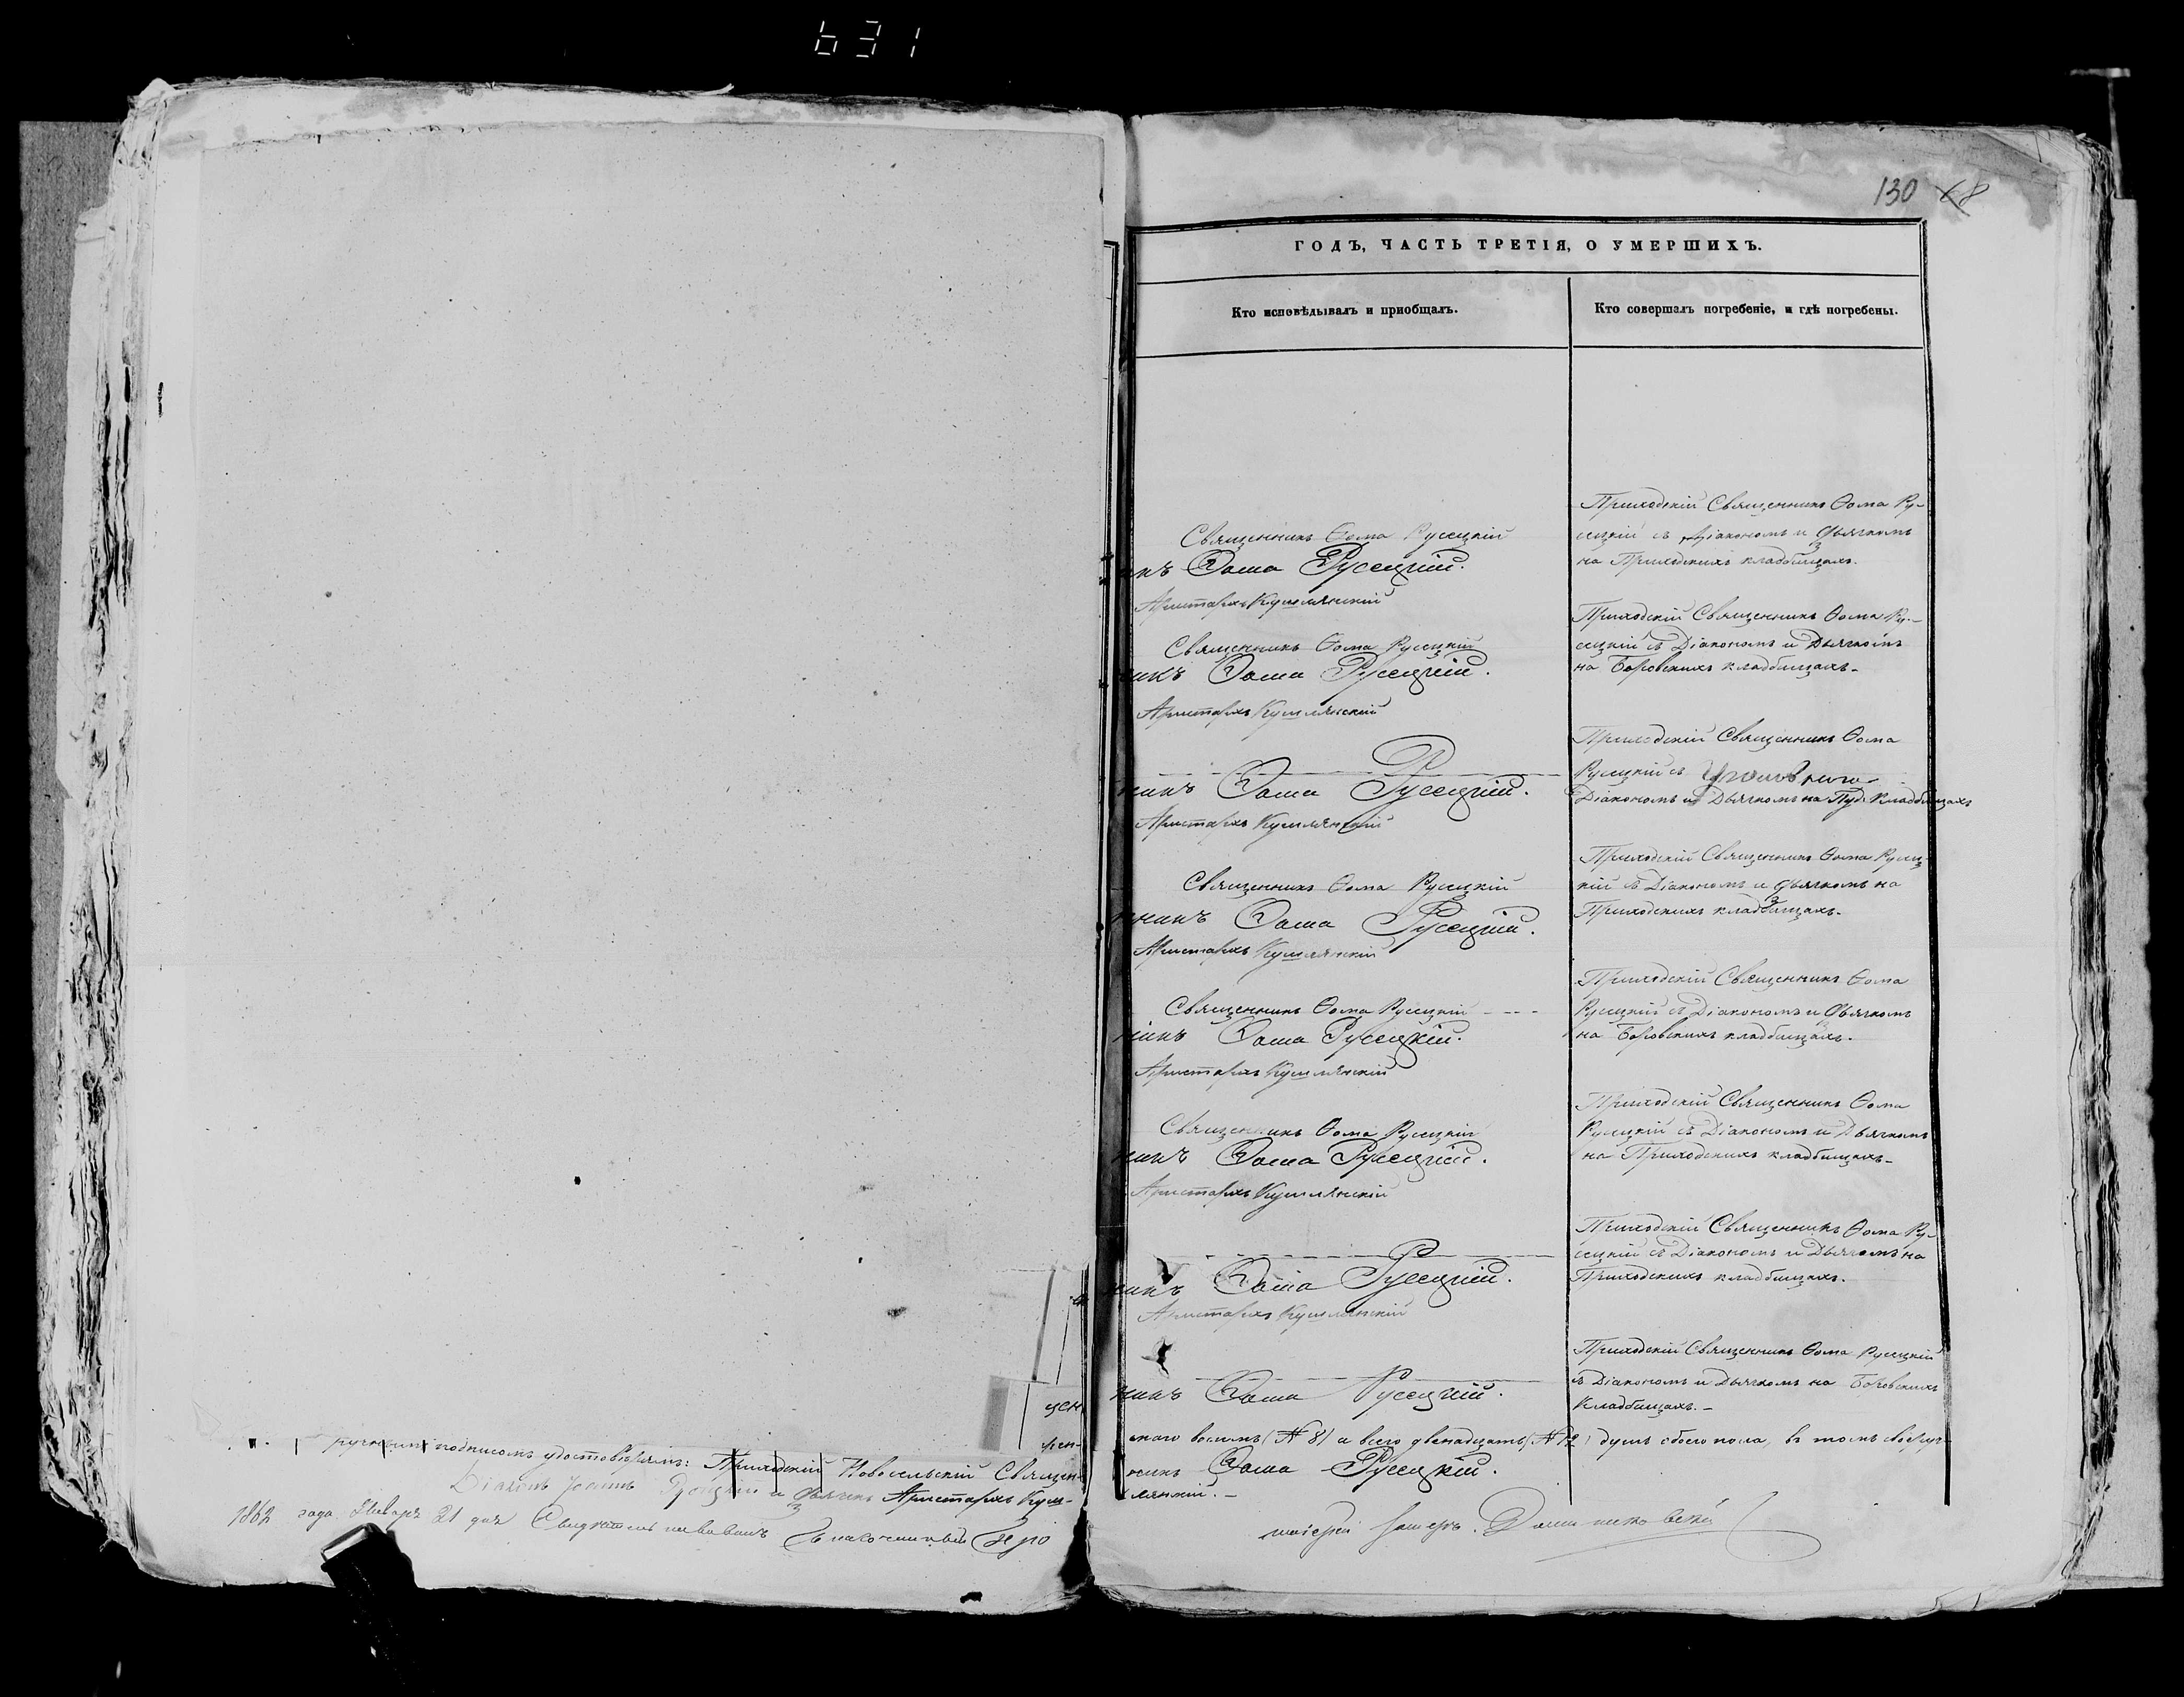 631
130 68
ГОДЪ, ЧАСТЬ ТРЕТІЯ, О УМЕРШИХЪ.
Кто исповѣдывалъ и пріобщалъ.
Кто совершалъ погребеніе, и гдѣ погребены.
Священникъ Ѳома Русецкій
икъ Ѳома Русецкій.
Аристархъ Кушлянскій
Приходскій Священникъ Ѳома Ру-
сецкій съ Діакономъ и Дьячкомъ
на Приходскихъ кладбищахъ.
Священникъ Ѳома Русецкій
никъ Ѳома Русецкій.
Аристархъ Кушлянскій
Приходскій Священникъ Ѳома Ру-
сецкій съ Діакономъ и Дьячкомъ
на Боровскихъ кладбищахъ.
никъ Ѳома Русецкій.
Аристархъ Кушлянскій
Приходскій Священникъ Ѳома
Русецкій съ
Діакономъ и Дьячкомъ на кладбищахъ
Священникъ Ѳома Русецкій
нникъ Ѳома Русецкій.
Аристархъ Кушлянскій
Приходскій Священникъ Ѳома Русец-
кій съ Діакономъ и Дьячкомъ на
Приходскихъ кладбищахъ.
Священникъ Ѳома Русецкій
никъ Ѳома Русецкій.
Аристархъ Кушлянскій
Приходскій Священникъ Ѳома
Русецкій съ Діакономъ и Дьячкомъ
на Боровскихъ кладбищахъ.
Священникъ Ѳома Русецкій
никъ Ѳома Русецкій.
Аристархъ Кушлянскій
Приходскій Священникъ Ѳома
Русецкій съ Діакономъ и Дьячкомъ
на Приходскихъ кладбищахъ.
никъ Ѳома Русецкій.
Аристархъ Кушлянскій
Приходскій Священникъ Ѳома Ру-
сецкій съ Діакономъ и Дьячкомъ на
Приходскихъ кладбищахъ.
никъ Ѳома Русецкій.
Приходскій Священникъ Ѳома Русецкій
съ Діакономъ и Дьячкомъ на Боровскихъ
Кладбищахъ.
скаго восемь (№ 8) а всего двенадцать (№ 12) душъ обоего пола, въ томъ своеруч-
ручнымъ подписомъ удостовѣряемъ: Приходскій Новосельскій Священ-
никъ Ѳома Русецкій.
Діаконъ и Дьячекъ Аристархъ Куш-
лянскій.
1862 года Января 21 дня